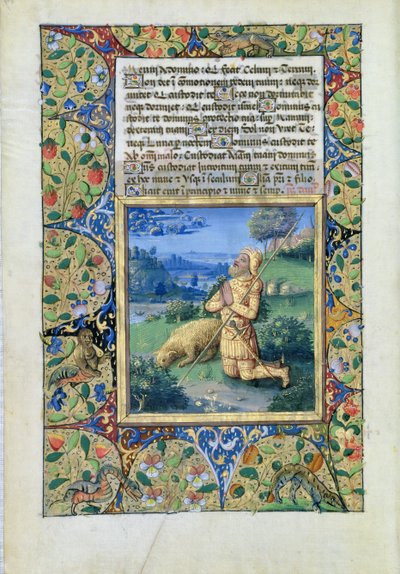 meum a domino : qui fecit celum & terram
Non det i comotionem pedem tuum : neqz dor
mitet qui custodit te Ecce non dormitabit
neqz dormiet : qui custodit isrl Dominus cu
stodit te dominus protectio tua : sup manum
dexteram tuam Per diem sol non uret te :
neqz luna per noctem Dominus custodit te
ab omni malo : custodiat aīam tuam dominus
Dn̄s custodiat introitum tuum & exitum tuum :
ex hoc nunc & usqz i seculum Gl̄ia pr̄i & filio
Sicut erat i principio & nunc & semp